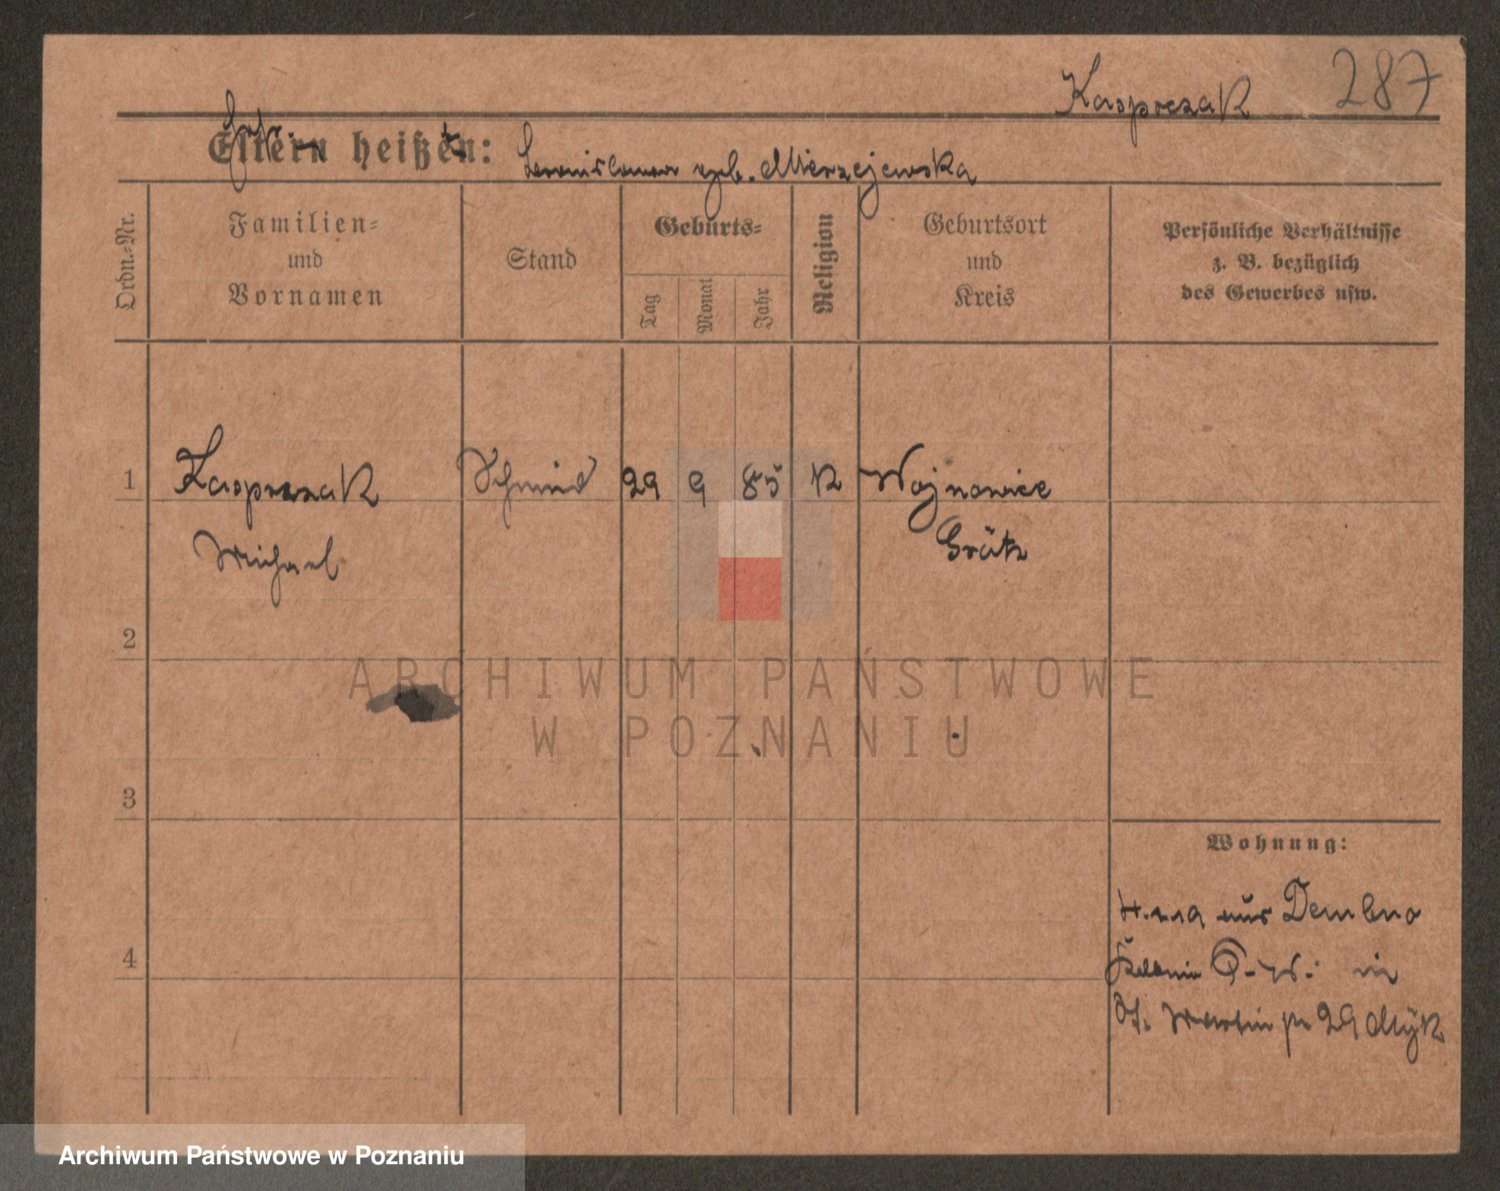 Kasprzak 287
Eltern heißen: geb. Mierzejewska
Ordn.-Nr.
Familien-
und
Vornamen
Stand
Geburts-
Tag
Monat
Jahr
Religion
Geburtsort
und
Kreis
Persönliche Verhältnisse
z. B. bezüglich
des Gewerbes usw.
1 Kasprzak Schmied 29 9 85 K Wojnowice
Michael Grätz
2
ARCHIWUM PAŃSTWOWE
W POZNANIU
3
Wohnung:
aus Dembno
4
in
St. Martin 29
Archiwum Państwowe w Poznaniu